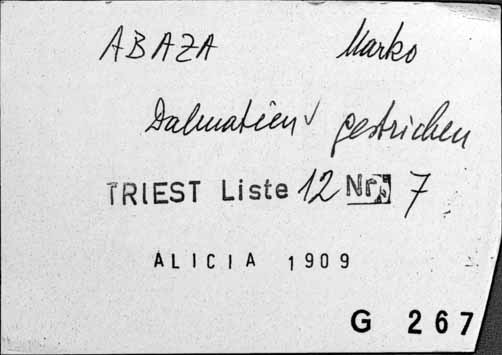 ABAZA Marko
Dalmatien gestrichen
TRIEST Liste 12 Nr. 7
ALICIA 1909
G 267